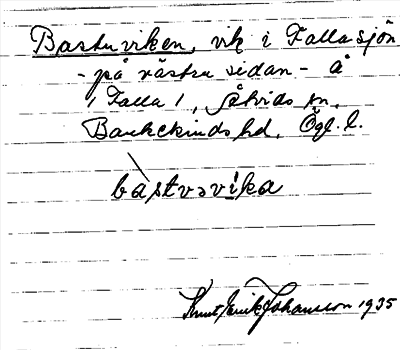 Bastuviken, vik i Fallasjön
- på västra sidan - å
1 Falla 1, Åtvids sn.
Bankekinds hd. Ögl. l.
bàstvəvika
Knut Erik Johansson 1935